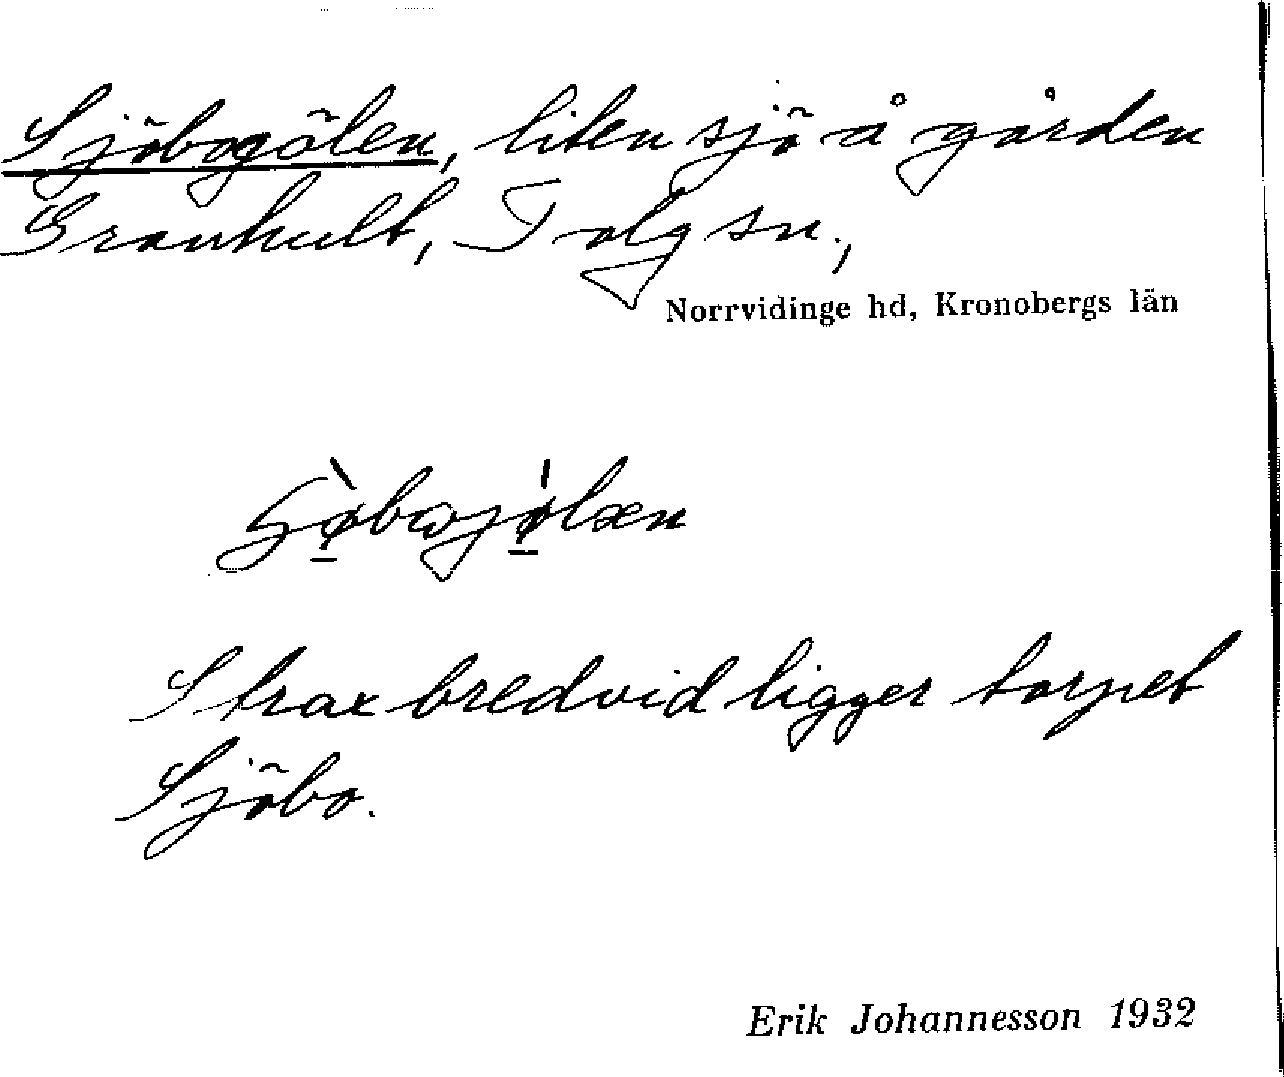 Sjöbogölen, liten sjö å gården
Granhult, Tolg sn.,
Norrvidinge hd, Kronobergs län
Strax bredvid ligger torpet
Sjöbo.
Erik Johannesson 1932